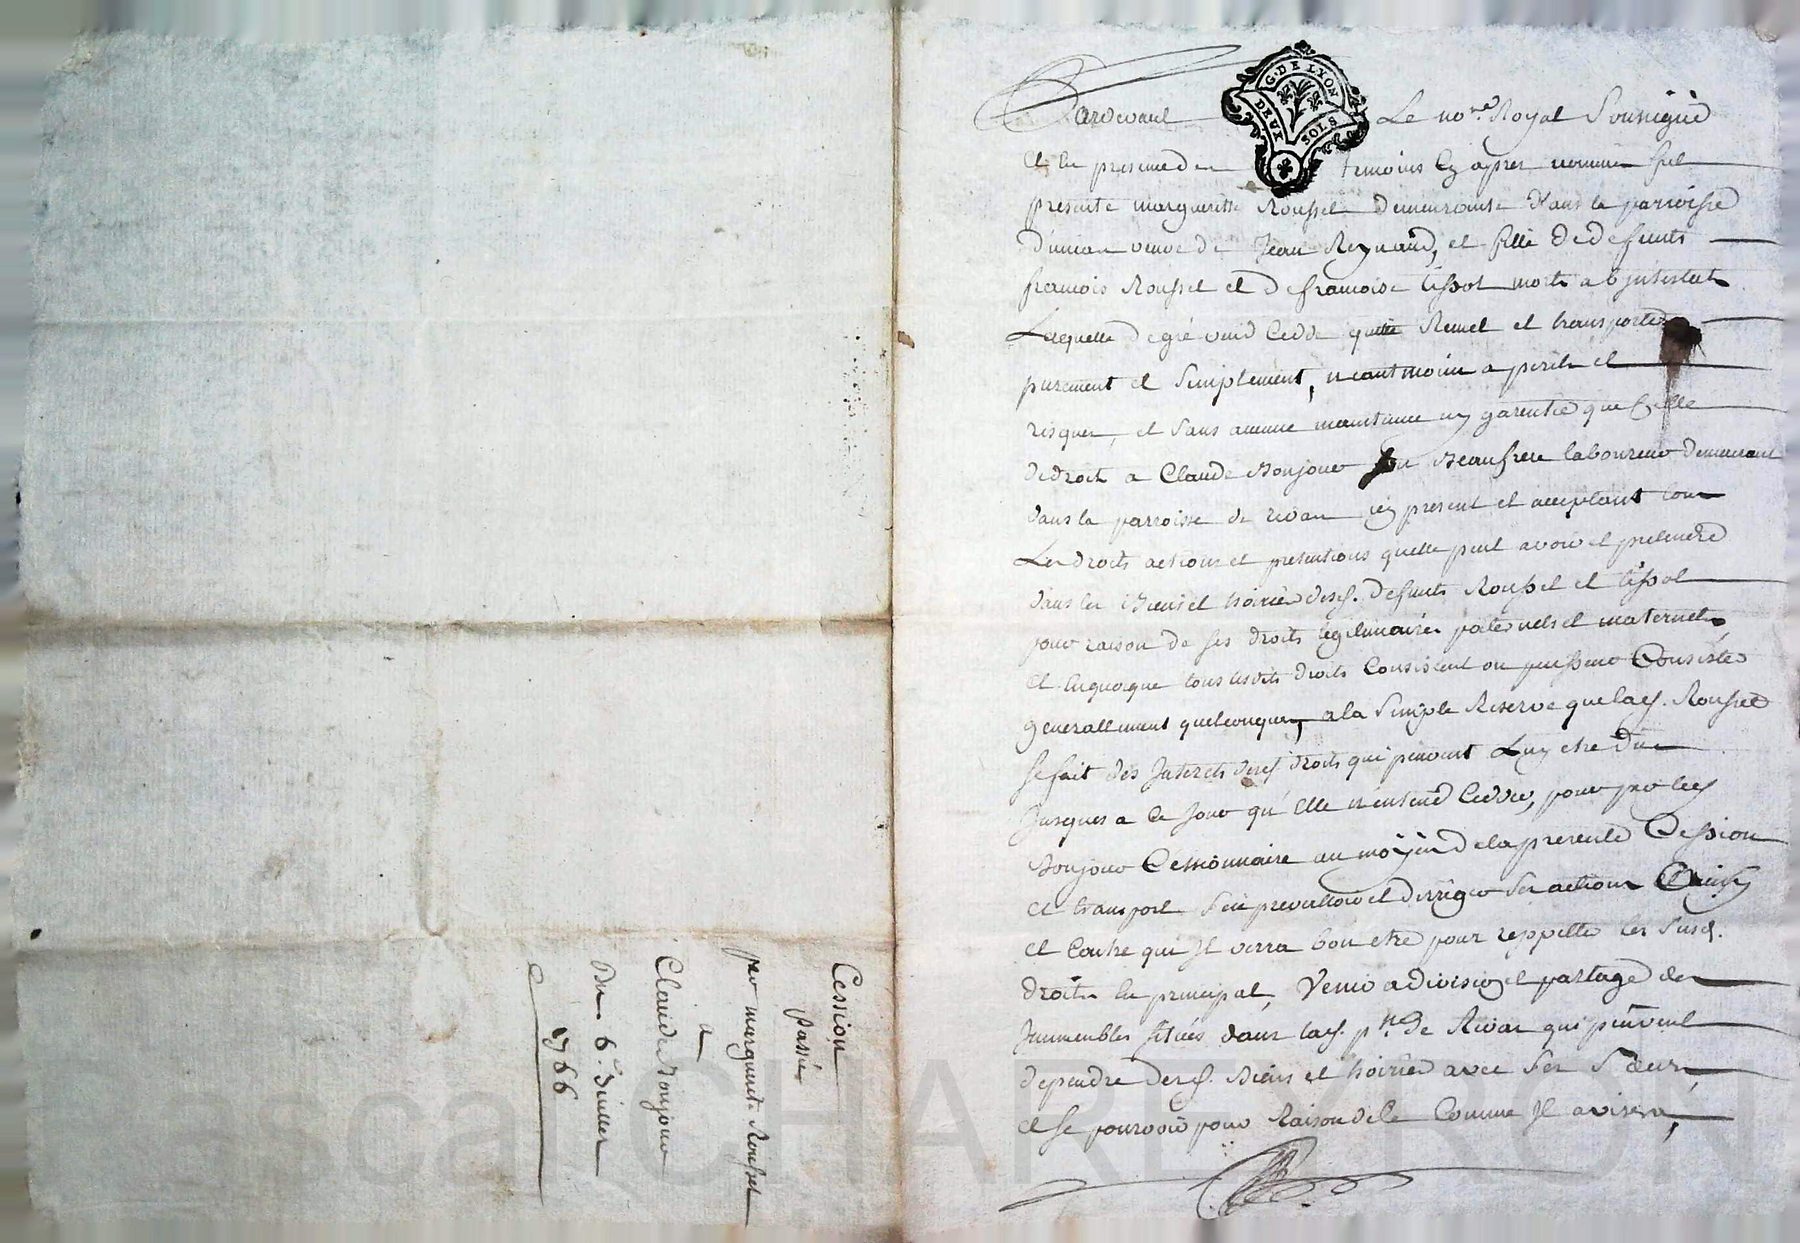 G. DE LYON
DEUX SOLS
Pardevant Le no.re Royal Sousigné
Et en presence des temoins cy apres nommes fut
presente margueritte Roussel demeurante dans la parroisse
veuve de Jean Reynaud, et fille de defunts
francois Roussel et de francoise tissot morts ab jntestats
Laquelle de gré vend cedde quitte Remet et transporte
purement et simplement, neantmoins a perils et
risques, et sans aucune maintenue ny garentie que celle
de droit a Claude Bonjour son Beaufrere laboureur demeurant
dans la parroisse de rivas icy present et acceptant tous
Les droits actions et pretentions quelle peut avoir et pretendre
dans les Biens et hoirie desd. defunts Roussel et tissot
pour raison de ses droits legitimaires paternels et maternels
Et en quoyque tous lesdits droits Consistent ou puissent Consister
generallement quelconques, a la simple Reserve que lad. Roussel
se fait des Jnterets desd droits qui peuvent Luy etre dus
Jusques a ce Jour qu'elle n'entend cedder, pour par led
Bonjour Cessionnaire au moÿen de la presente Cession
et transport s'en prevalloir et dirriger ses actions
et Contre qui Jl verra bon etre pour reppetter les susd.
droits en principal, Venir a division et partage des
Jmmeubles situés dans lad. p.sse de Rivas qui peuvent
dependre desd. Biens et hoirie avec ses sœurs,
et se pourvoir pour Raison de ce Comme Jl avisera,
Cession
passée
par marguerite Roussel
a
Claude Bonjour
Du 6.e Juillet
1766
Pascal CHAREYRON